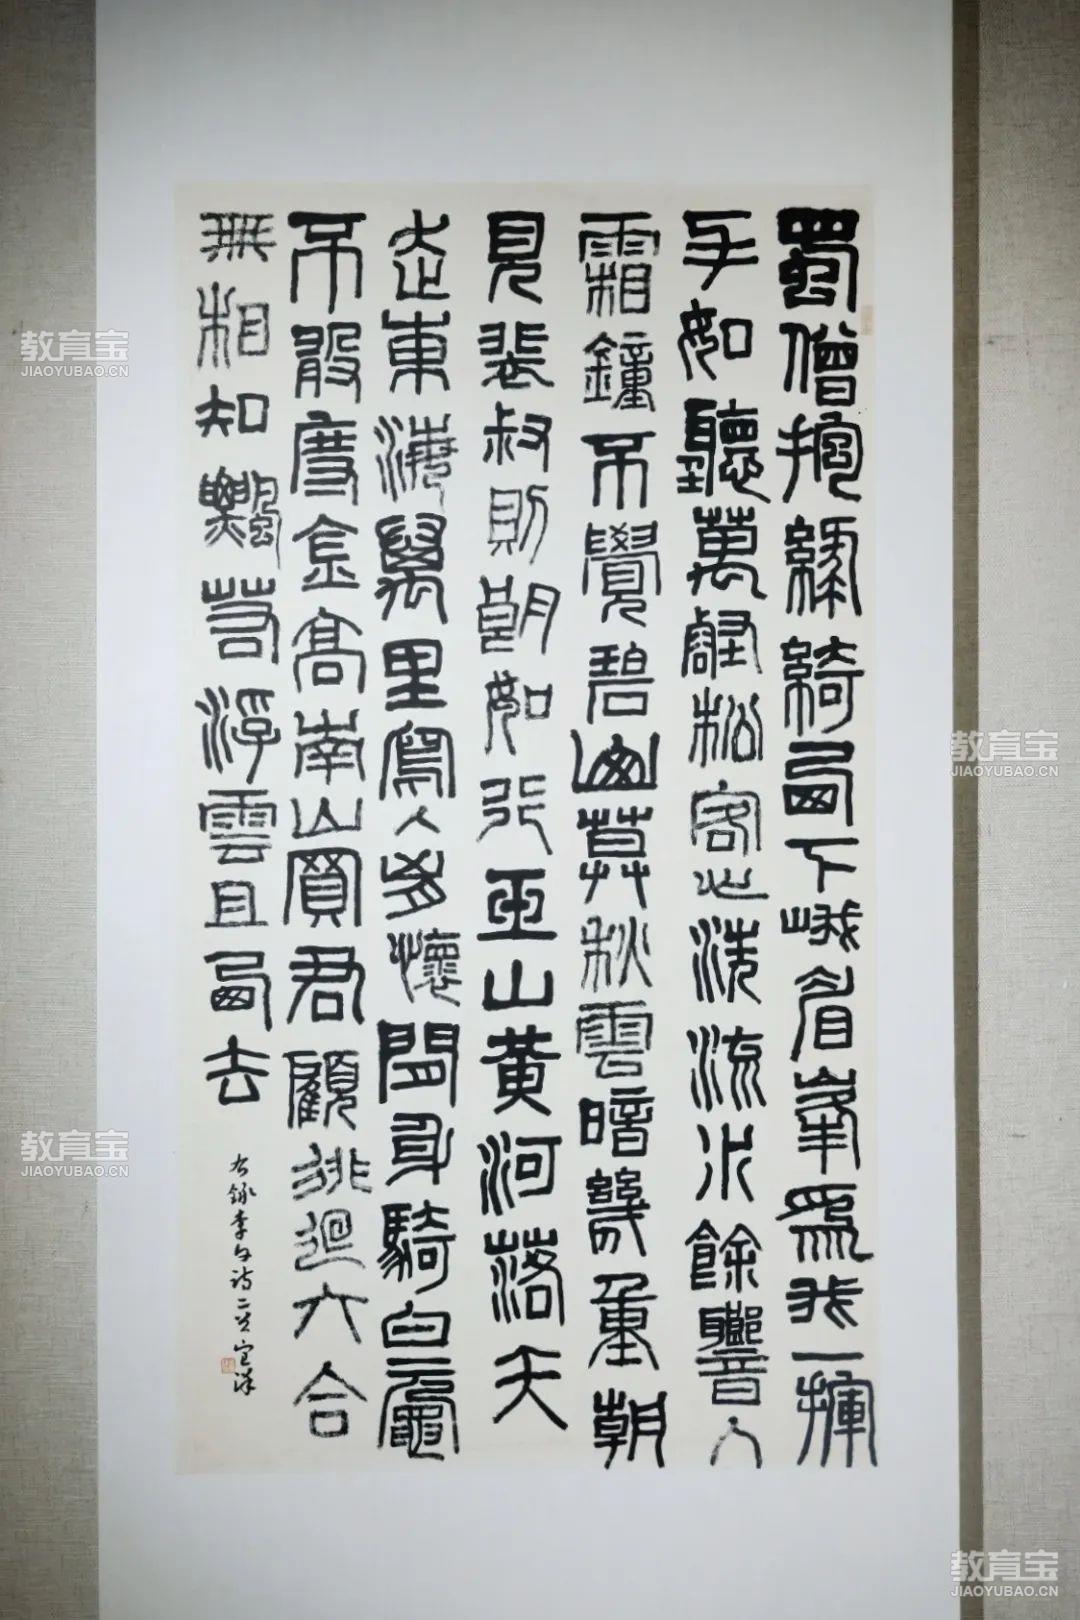 蜀僧抱綠綺西下峨眉峯為我一揮
手如聽萬壑松客心洗流水餘響入
霜鐘不覺碧山暮秋雲暗幾重朝
見裴叔則朗如行玉山黃河落天
走東海萬里寫入胸懷間身騎白黿
不敢度金高南山買君顧徘徊六合
無相知飄若浮雲且西去
右錄李白詩二首
教育宝
JIAOYUBAO.CN
教育宝
JIAOYUBAO.CN
教育宝
JIAOYUBAO.CN
教育宝
JIAOYUBAO.CN